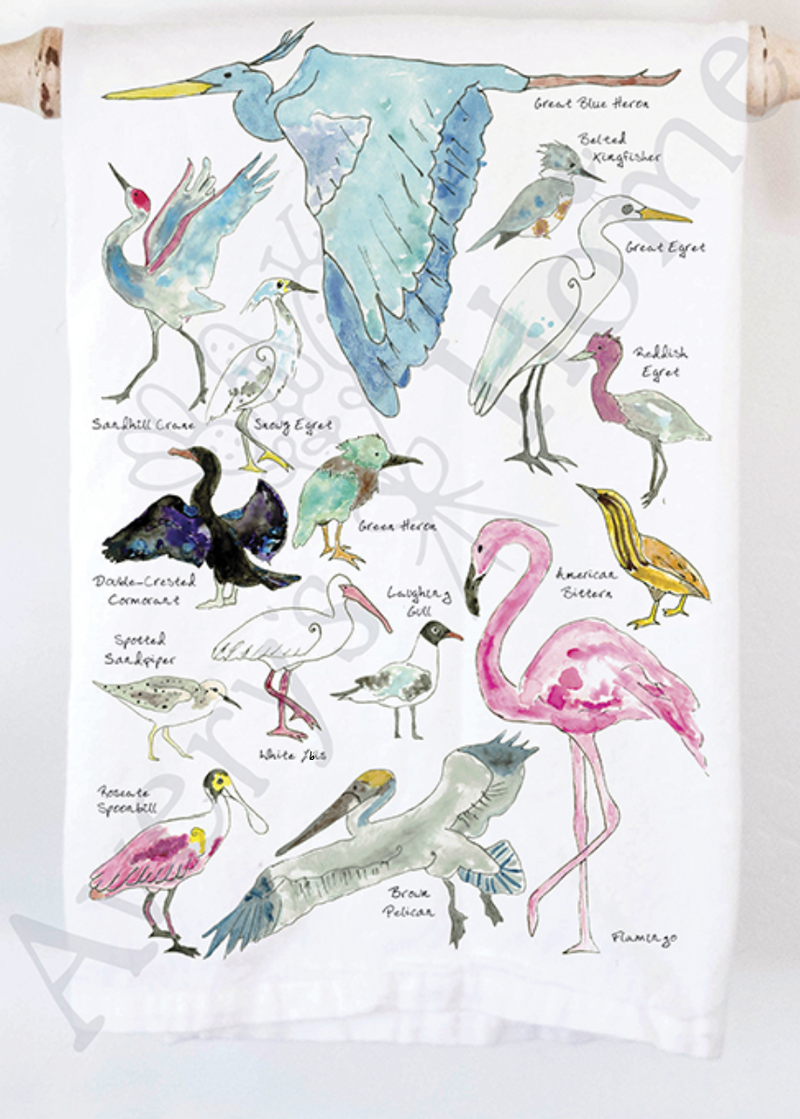 Great Blue Heron
Belted
Kingfisher
Great Egret
Reddish
Egret
Sandhill Crane
Snowy Egret
Green Heron
Double-Crested
Cormorant
American
Bittern
Laughing
Gull
Spotted
Sandpiper
White Ibis
Roseate
Spoonbill
Brown
Pelican
Flamingo
Avery's Home